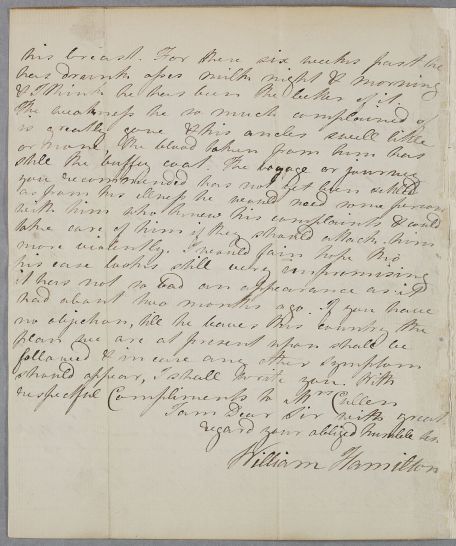 his breast. For these six weeks past he
has drank asses milk night & morning
& I think he has been the better of it
The weakness he so much complained of
is greatly gone & his ancles swell little
or none, the blood taken from him has
still the buffy coat. The voyage or journey
you recommended has not yet been
as from his illness he would need some person
with him who knew his complaints & could
take care of him if they should attack him
more violently. I would fain hope tho
his case looks still very unpromising
it has not so bad an appearance as it
had about two months ago. If you have
no objection, till he leaves this country the
plan we are at present upon shall be
followed & in case any other symptom
should appear, I shall write you. With
respectful Compliments to Mrs Cullen
I am Dear Sir with great
regard your obliged humble Ser.
William Hamilton